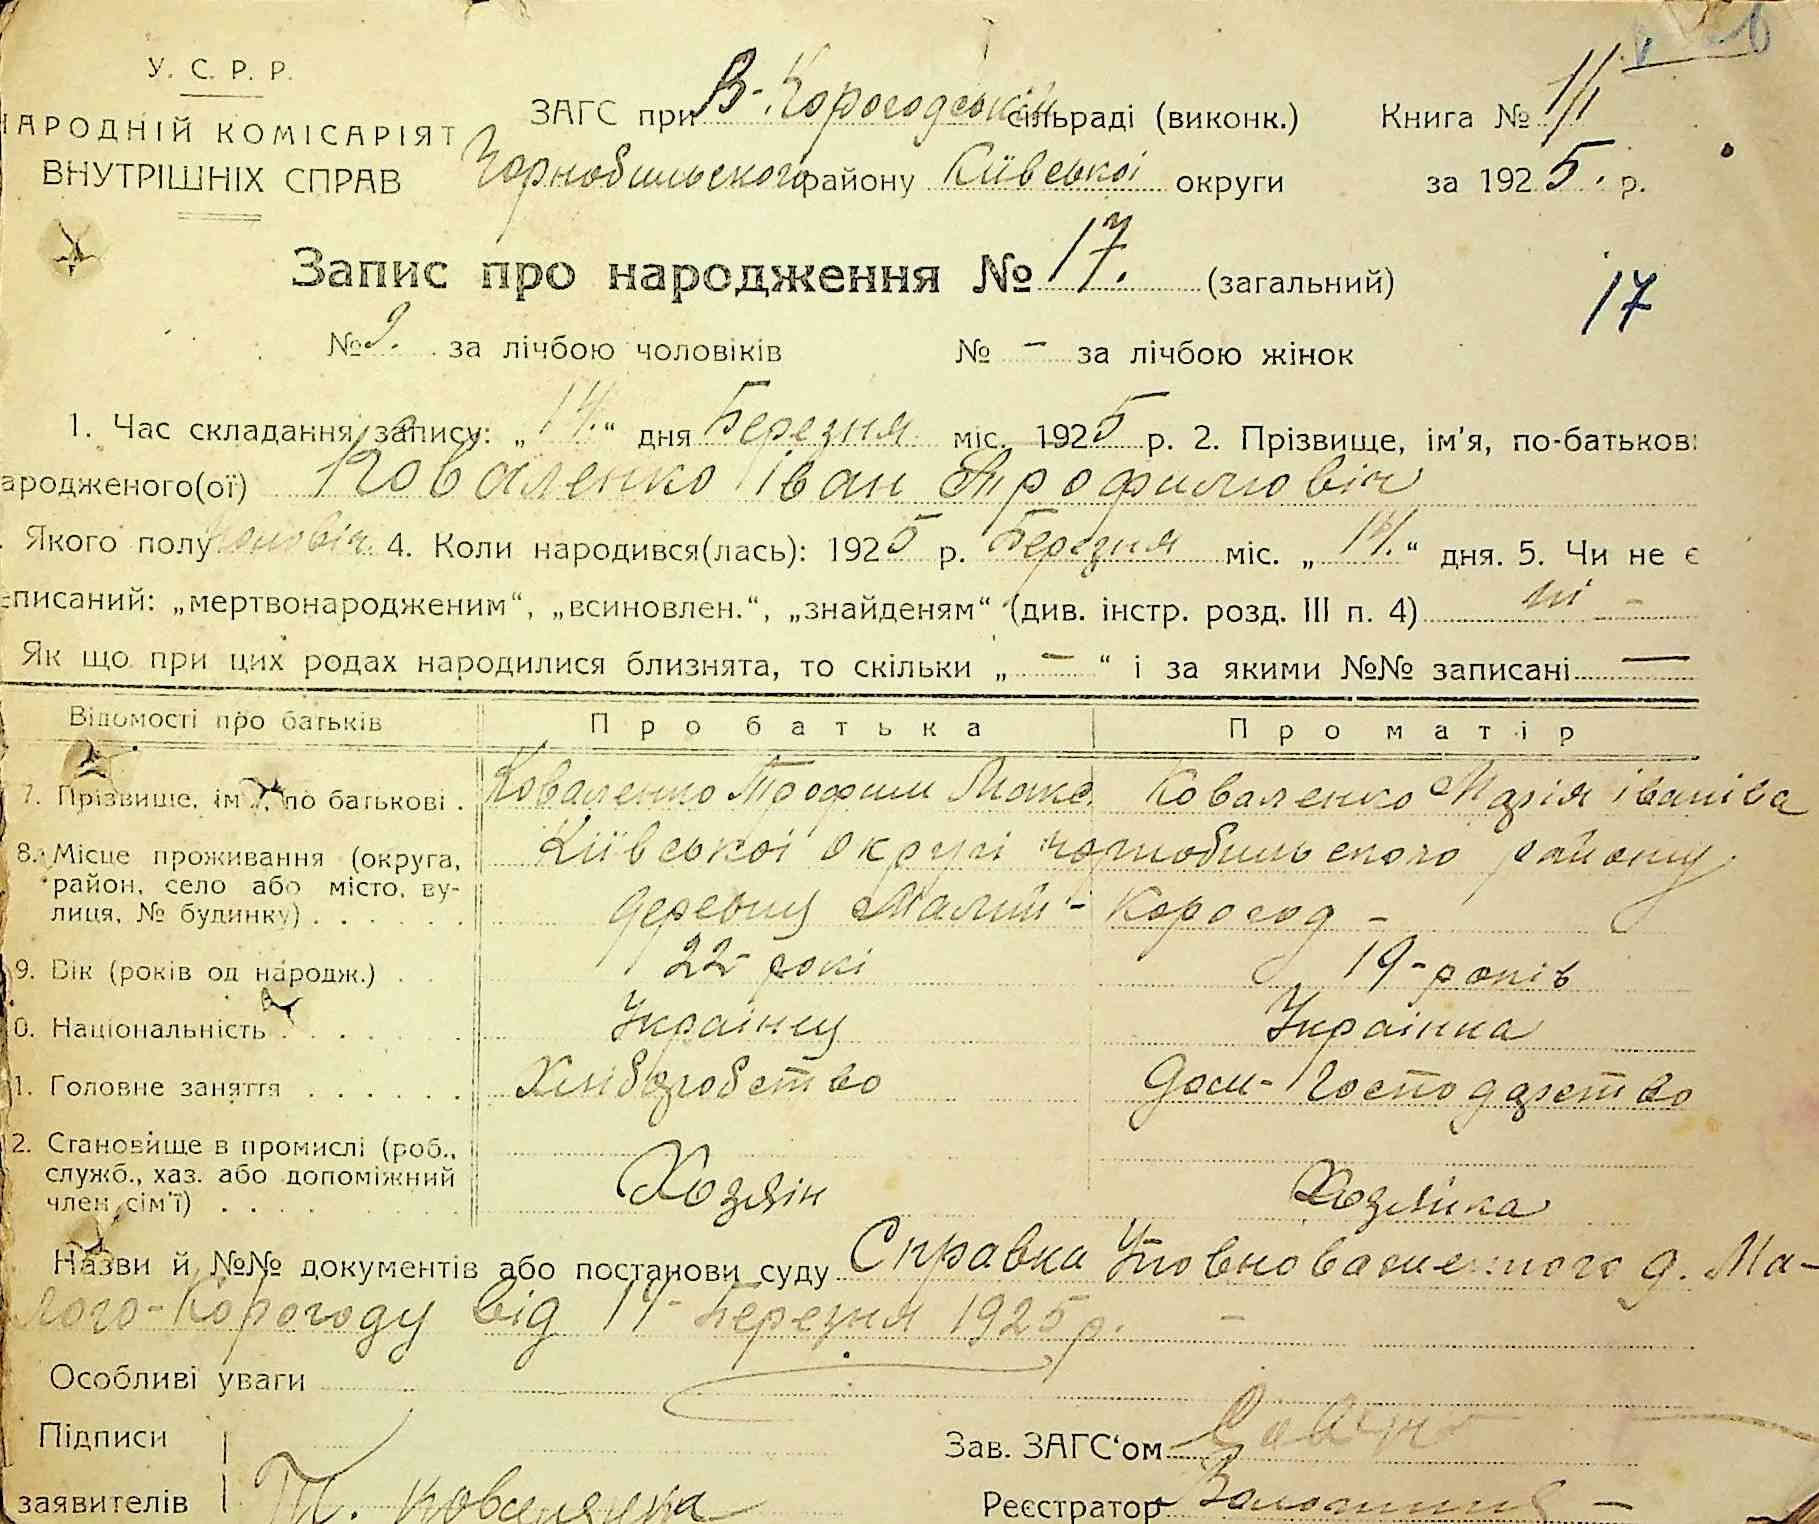 У. С. Р. Р.
НАРОДНІЙ КОМІСАРІЯТ
ВНУТРІШНІХ СПРАВ
ЗАГС при В-Корогодській сільраді (виконк.) Книга № 1/1
Чорнобильского району Київської округи за 1925. р.
Запис про народження № 17. (загальний)
17
№ 9. за лічбою чоловіків № - за лічбою жінок
1. Час складання запису: „14.“ дня Березня міс. 1925 р. 2. Прізвище, ім'я, по-батькові
ародженого(ої) Коваленко Іван Трофимовіч
. Якого полу чоловіч. 4. Коли народився(лась): 1925 р. Березня міс. „14.“ дня. 5. Чи не є
писаний: „мертвонародженим“, „всиновлен.“, „знайденям“ (див. інстр. розд. III п. 4) ні -
Як що при цих родах народилися близнята, то скільки „-“ і за якими №№ записані —
Відомості про батьків Про батька Про матір
7. Прізвище, ім'я, по батькові . Коваленко Трофим Коваленко Марія Іваніва
8. Місце проживання (округа, район, село або місто, вулиця, № будинку) . . . . . . Київської округі Чорнобильского району
деревну Малий-Корогод -
9. Вік (років од народж.) . . 22 рокі 19-років
0. Національність . . . . . . . Українец Українка
1. Головне заняття . . . . . . Хліборобство Дом-Господарство
2. Становище в промислі (роб., служб., хаз. або допоміжний член сім'ї) . . . . . . . . Хозяін Хозяйка
Назви й №№ документів або постанови суду Справка Уповноваженного д. Ма-
лого-Корогоду від 14 Березня 1925 р. -
Особливі уваги
Підписи Зав. ЗАГС'ом
заявителів Т. Реєстратор